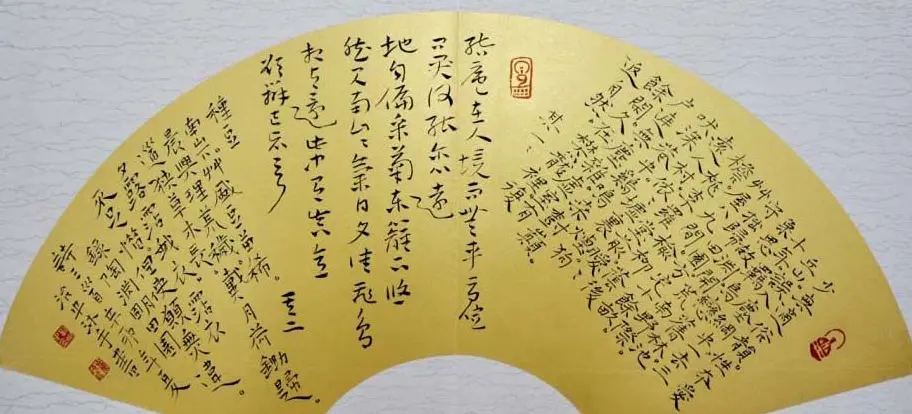 少無適俗韻。性本愛
丘山。誤落塵網中。一去三
十年。羈鳥戀舊林。池
魚思故淵。開荒南野際。
守拙歸園田。方宅十餘畝。
艸屋八九間。榆柳蔭後
檐。桃李羅堂前。曖曖
遠人村。依依墟里煙。狗
吠深巷中。雞鳴桑樹顛。
户庭無塵雜。虛室有
餘閒。久在樊籠裡。復得
返自然。其一
結廬在人境而無車馬喧
問君何能爾心遠
地自偏采菊東籬下悠
然見南山山氣日夕佳飛鳥
相與還此中有真意
欲辨已忘言 其二
種豆
南山下艸盛豆苗稀。
晨興理荒穢。戴月荷鋤歸。
道狹草木長。夕露沾我衣。衣沾
不足惜。但使願無違。
錄陶淵明田園
詩三首辛卯年夏